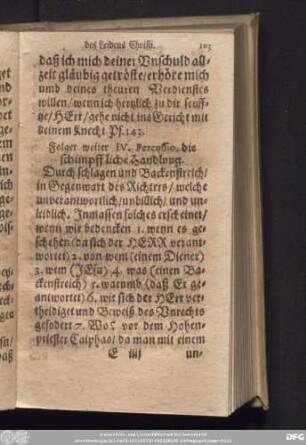 des Leidens Christi. 103
daß ich mich deiner Vnschuld all-
zeit gläubig getröste/erhöre mich
und deines theuren Verdienstes
willen/wenn ich hertzlich zu dir seuff-
tze/HErr/gehe nicht ins Gericht mit
deinem Knecht Ps. 143.
Folget weiter IV. Percussio, die
schimpffliche Handlung.
Durch schlagen und Backenstreich/
in Gegenwart des Richters/ welche
unverantwortlich/unbillich/ und un-
leidlich. Inmassen solches erscheinet/
wenn wir bedencken 1. wenn es ge-
schehen (da sich der HERR verant-
wortet) 2. von wem (einem Diener)
3. wem (JEsu) 4. was (einen Ba-
ckenstreich) 5. warumb (daß Er ge-
antwortet) 6. wie sich der HErr ver-
theidiget und Beweiß des Vnrechts
gefodert 7. Wo? vor dem Hohen-
priester Caiphas/ da man mit einem
E iiij un-